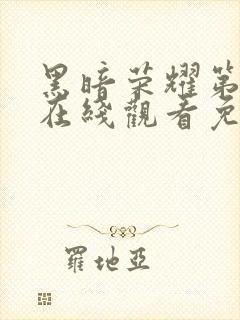 黑暗荣耀第
在线觀看免
羅地亞